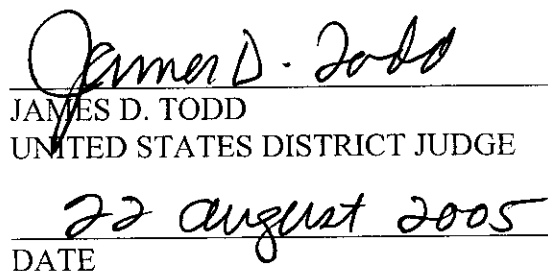 James D. Todd
JAMES D. TODD
UNITED STATES DISTRICT JUDGE
22 august 2005
DATE